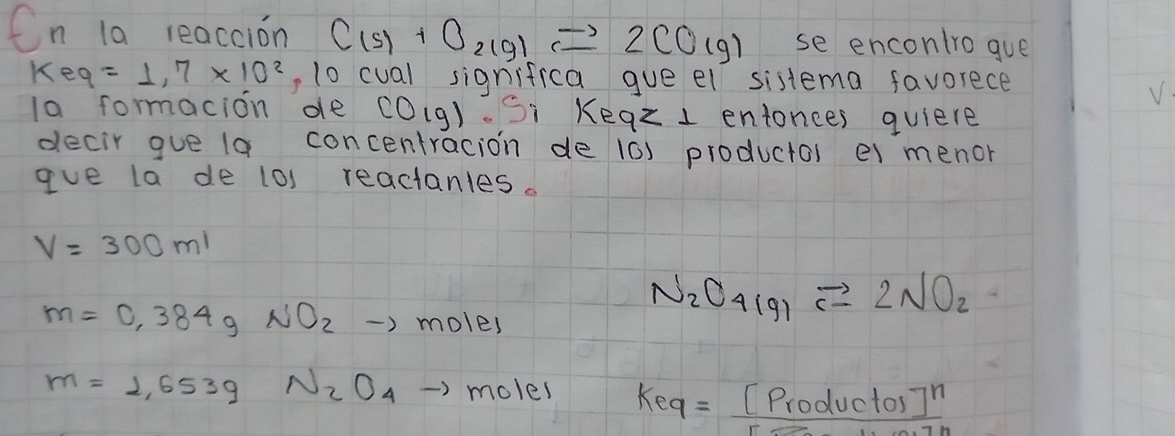 En la reacción C(s) + O2(g) ⇄ 2CO(g) se encontro que
Keq = 1,7 × 10², lo cual significa que el sistema favorece
la formación de CO(g). Si Keq < 1 entonces quiere
decir que la concentración de los productos es menor
que la de los reactantes.
V = 300 ml
N2O4(g) ⇄ 2NO2
m = 0,384g NO2 → moles
m = 1,653g N2O4 → moles
Keq = [Productos]ⁿ